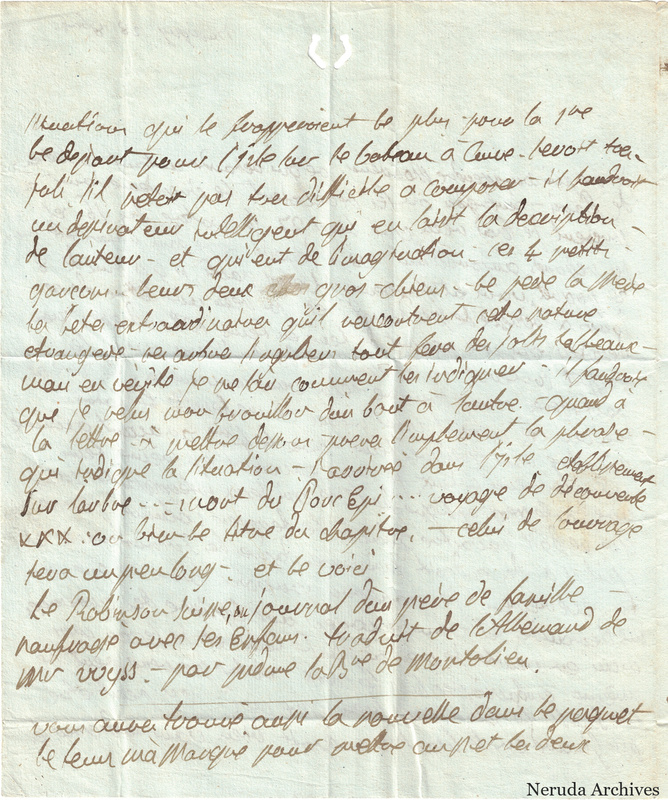 situations qui le frapperoient le plus - pour la 1re
le depart pour l'Isle sur le bateau à Cuve - seroit tres
joli s'il n'etoit pas tres difficile a composer - il faudroit
un dessinateur intelligent qui en lisit la description -
de l'auteur - et qui eut de l'imagination - ces 4 petits
garçons - leurs deux gros-chiens - le pere la mere
les betes extraordinaires qu'il rencontrent cette nature
etrangere - ces arbres singuliers tout fera des jolis tableaux -
mais en vérité je ne sais comment les indiquer - il faudroit
que je relus mon brouillon d'un bout à l'autre - quand à
la lettre a mettre dessous prenez simplement la phrase -
qui indique la situation - l'arrivée dans l'Isle etablissement
sur l'arbre ... mort du Porc Epi ... voyage de découverte
xxx ou bien le titre du chapitre. - celui de l'ouvrage
sera un peu long - et le voici
Le Robinson suisse, ou journal d'un père de famille -
naufragé avec ses Enfans. traduit de l'Allemand de
Mr Wyss. - par Mme la Bne de Montolieu.
vous aurez trouvé aussi la nouvelle dans le paquet
le tems m'a manqué pour mettre au net les deux
Neruda Archives